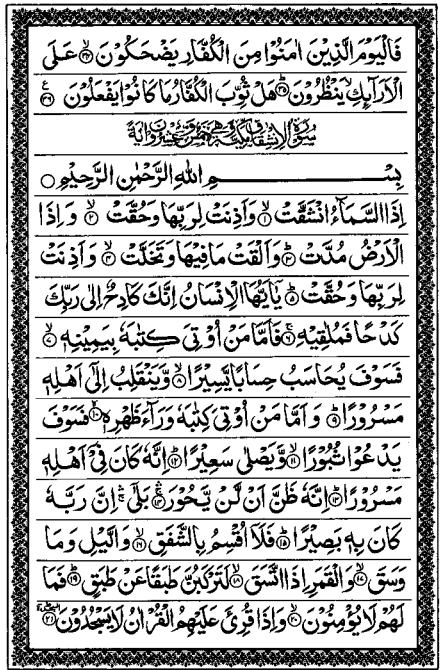 فَالْيَوْمَ الَّذِيْنَ اٰمَنُوْا مِنَ الْكُفَّارِ يَضْحَكُوْنَ ۙ﴿۳۴﴾ عَلَى
الْاَرَآىِٕكِ ۙ يَنْظُرُوْنَ ؕ﴿۳۵﴾ هَلْ ثُوِّبَ الْكُفَّارُ مَا كَانُوْا يَفْعَلُوْنَ ﴿۳۶﴾
سُوْرَةُ الْاِنْشِقَاقِ مَكِّيَّةٌ وَّهِيَ خَمْسٌ وَّعِشْرُوْنَ اٰيَةً
بِسْمِ اللّٰهِ الرَّحْمٰنِ الرَّحِيْمِ ○
اِذَا السَّمَآءُ انْشَقَّتْ ۙ﴿۱﴾ وَاَذِنَتْ لِرَبِّهَا وَحُقَّتْ ۙ﴿۲﴾ وَاِذَا
الْاَرْضُ مُدَّتْ ؕ﴿۳﴾ وَاَلْقَتْ مَا فِيْهَا وَتَخَلَّتْ ۙ﴿۴﴾ وَاَذِنَتْ
لِرَبِّهَا وَحُقَّتْ ؕ﴿۵﴾ يٰۤاَيُّهَا الْاِنْسَانُ اِنَّكَ كَادِحٌ اِلٰى رَبِّكَ
كَدْحًا فَمُلٰقِيْهِ ۚ﴿۶﴾ فَاَمَّا مَنْ اُوْتِيَ كِتٰبَهٗ بِيَمِيْنِهٖ ۙ﴿۷﴾
فَسَوْفَ يُحَاسَبُ حِسَابًا يَّسِيْرًا ۙ﴿۸﴾ وَّيَنْقَلِبُ اِلٰۤى اَهْلِهٖ
مَسْرُوْرًا ؕ﴿۹﴾ وَاَمَّا مَنْ اُوْتِيَ كِتٰبَهٗ وَرَآءَ ظَهْرِهٖ ۙ﴿۱۰﴾ فَسَوْفَ
يَدْعُوْا ثُبُوْرًا ۙ﴿۱۱﴾ وَّيَصْلٰى سَعِيْرًا ؕ﴿۱۲﴾ اِنَّهٗ كَانَ فِيْۤ اَهْلِهٖ
مَسْرُوْرًا ؕ﴿۱۳﴾ اِنَّهٗ ظَنَّ اَنْ لَّنْ يَّحُوْرَ ۚ﴿۱۴﴾ بَلٰۤى ۚ اِنَّ رَبَّهٗ
كَانَ بِهٖ بَصِيْرًا ؕ﴿۱۵﴾ فَلَاۤ اُقْسِمُ بِالشَّفَقِ ۙ﴿۱۶﴾ وَالَّيْلِ وَمَا
وَسَقَ ۙ﴿۱۷﴾ وَالْقَمَرِ اِذَا اتَّسَقَ ۙ﴿۱۸﴾ لَتَرْكَبُنَّ طَبَقًا عَنْ طَبَقٍ ؕ﴿۱۹﴾ فَمَا
لَهُمْ لَا يُؤْمِنُوْنَ ۙ﴿۲۰﴾ وَاِذَا قُرِئَ عَلَيْهِمُ الْقُرْاٰنُ لَا يَسْجُدُوْنَ ﴿۲۱﴾